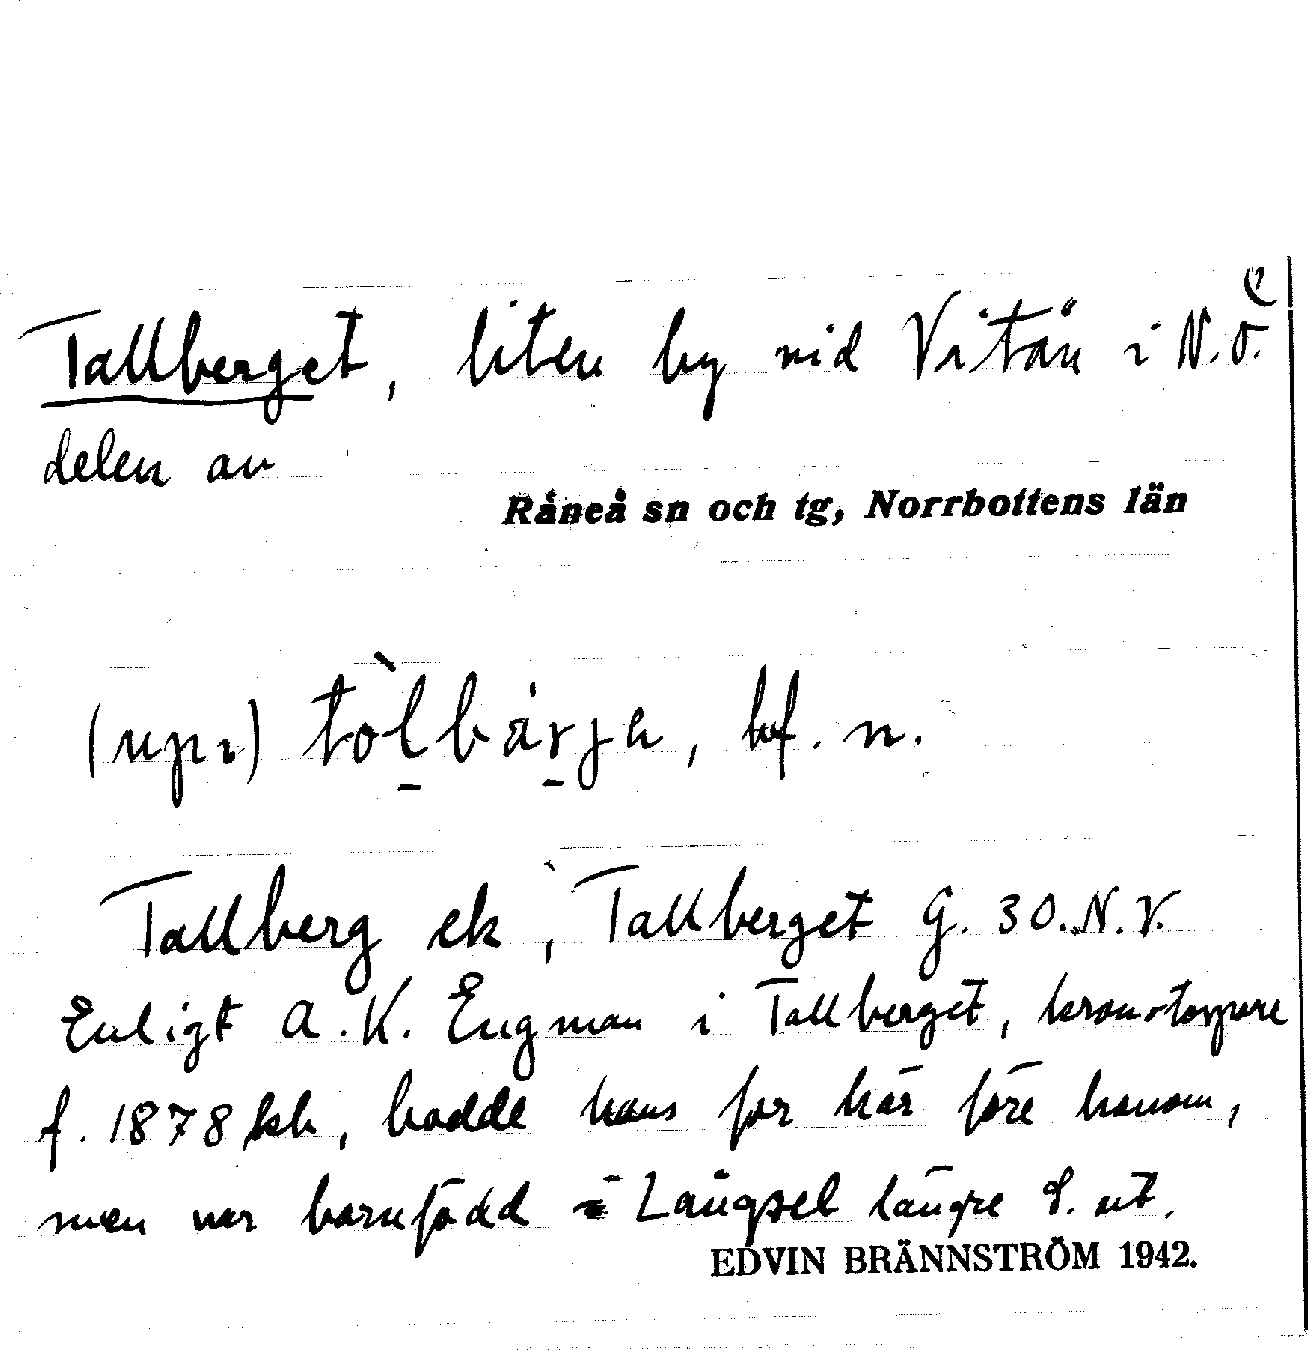 Tallberget, liten by vid Vitån i N.Ö.
delen av
Råneå sn och tg, Norrbottens län
(upi) tòlbärja, bf. n.
Tallberg ek, Tallberget G. 30.N.V.
Enligt A.K. Engman i Tallberget, kronotorpare
f. 1878 hb, bodde hans far här före honom,
men var barnfödd i Långsel längre S. ut.
EDVIN BRÄNNSTRÖM 1942.